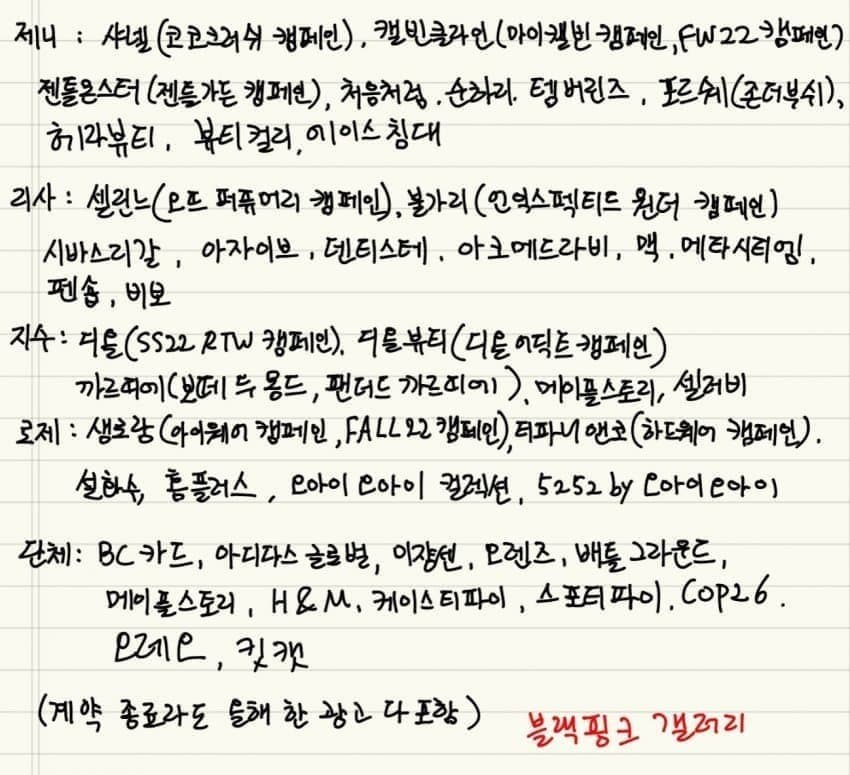 제니 : 샤넬(코코크러쉬 캠페인), 캘빈클라인(마이캘빈 캠페인, FW22 캠페인)
젠틀몬스터(젠틀가든 캠페인), 처음처럼, 순하리, 탬버린즈, 포르쉐(존더부쉬),
헤라뷰티, 뷰티컬리, 에이스침대
리사 : 셀린느(오뜨 퍼퓨머리 캠페인), 불가리(언익스펙티드 원더 캠페인)
시바스리갈, 아자이브, 덴티스테, 아크메드라비, 맥, 메타시티엠,
펜숍, 비보
지수 : 디올(SS22 RTW 캠페인), 디올뷰티(디올어딕트 캠페인)
까르띠에(보떼 두 몽드, 팬더드 까르띠에), 메이플스토리, 셀러비
로제 : 생로랑(아이웨어 캠페인, FALL22 캠페인), 티파니앤코(하드웨어 캠페인).
설화수, 홈플러스, 오아이오아이 컬렉션, 5252 by 오아이오아이
단체 : BC카드, 아디다스 글로벌, 이쟝센, 오렌즈, 배틀그라운드,
메이플스토리, H&M, 케이스티파이, 스포티파이, COP26.
오레오, 킷캣
(계약 종료라도 올해 한 광고 다 포함)
블랙핑크 갤러리